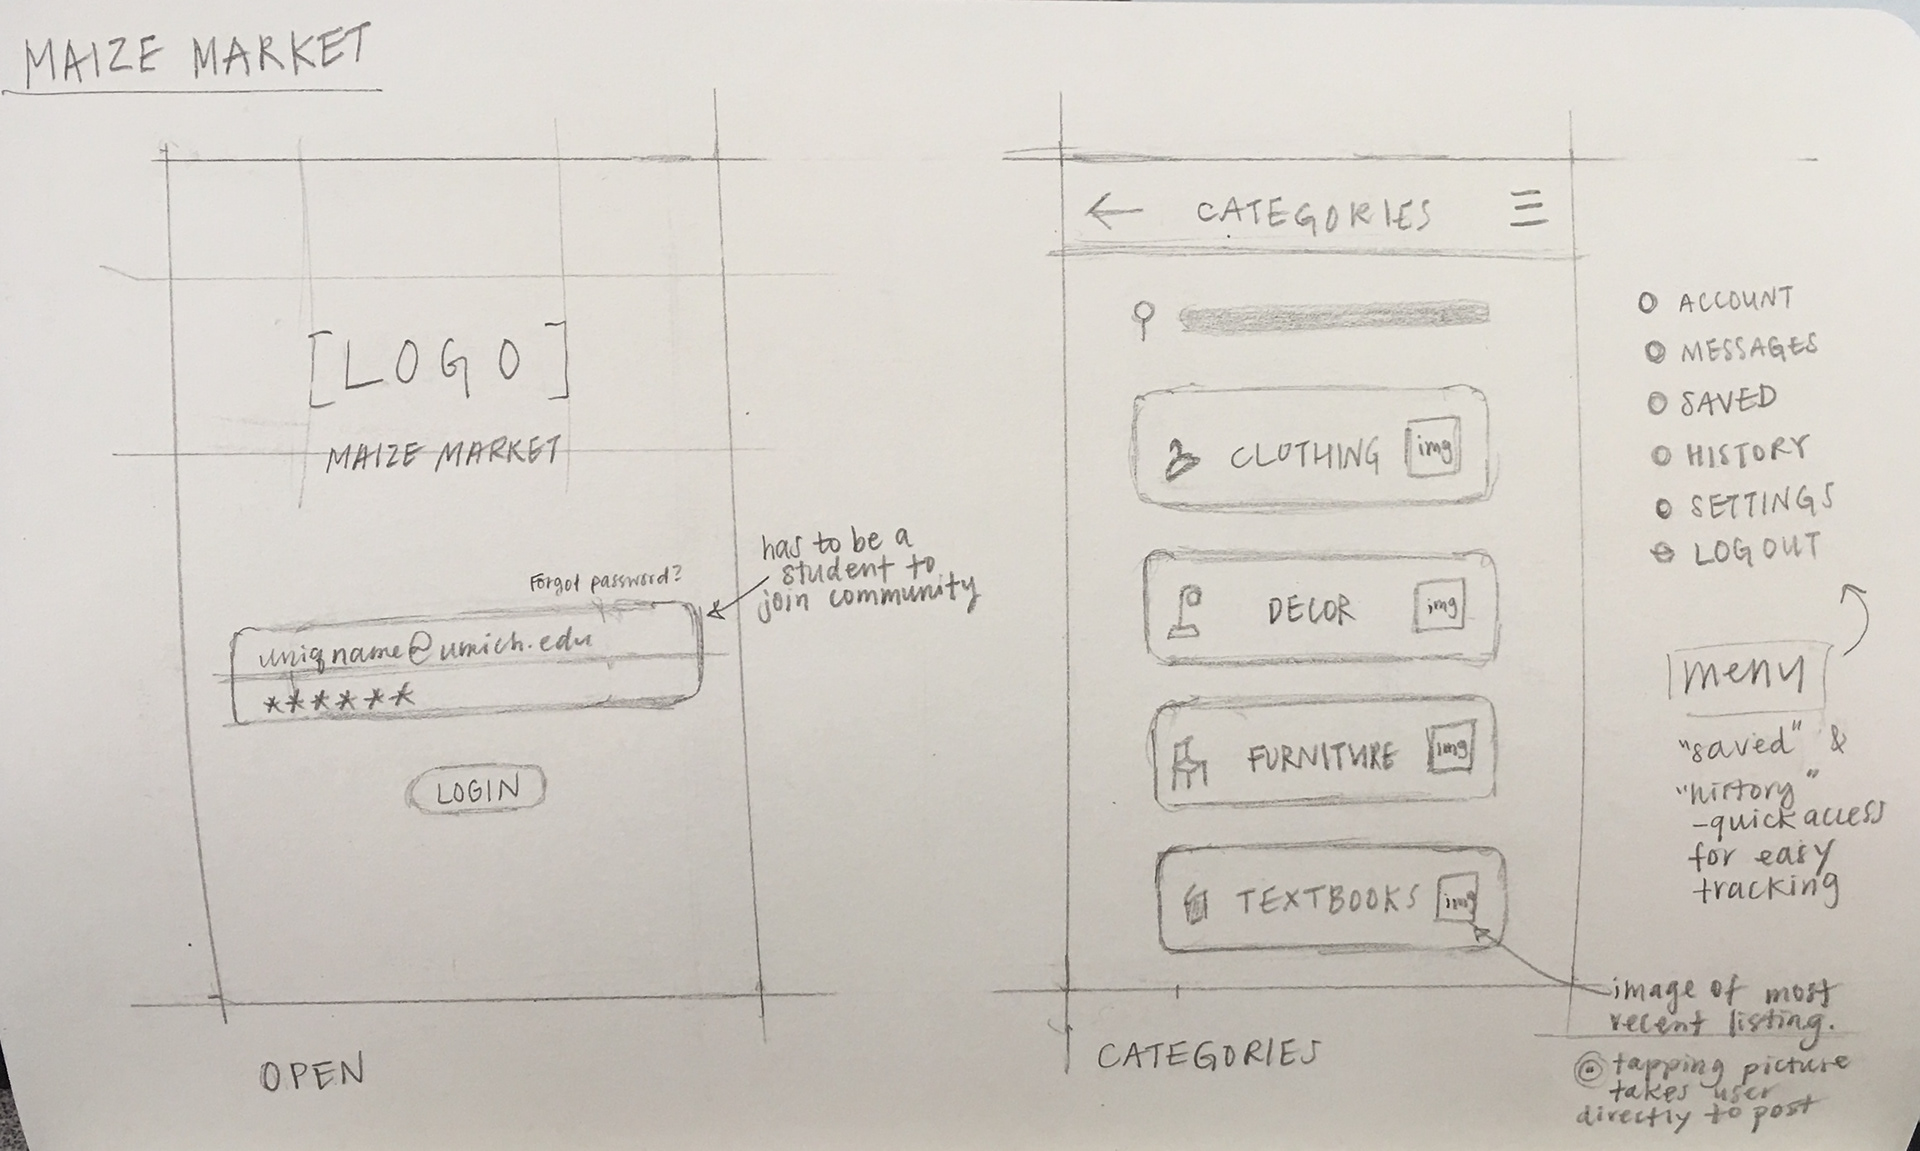 MAIZE MARKET
[LOGO]
MAIZE MARKET
Forgot password?
uniqname@umich.edu
******
LOGIN
has to be a
student to
join community
OPEN
CATEGORIES
CLOTHING
img
DECOR
img
FURNITURE
img
TEXTBOOKS
img
CATEGORIES
ACCOUNT
MESSAGES
SAVED
HISTORY
SETTINGS
LOG OUT
menu
"saved" &
"history"
-quick access
for easy
tracking
image of most
recent listing.
tapping picture
takes user
directly to post